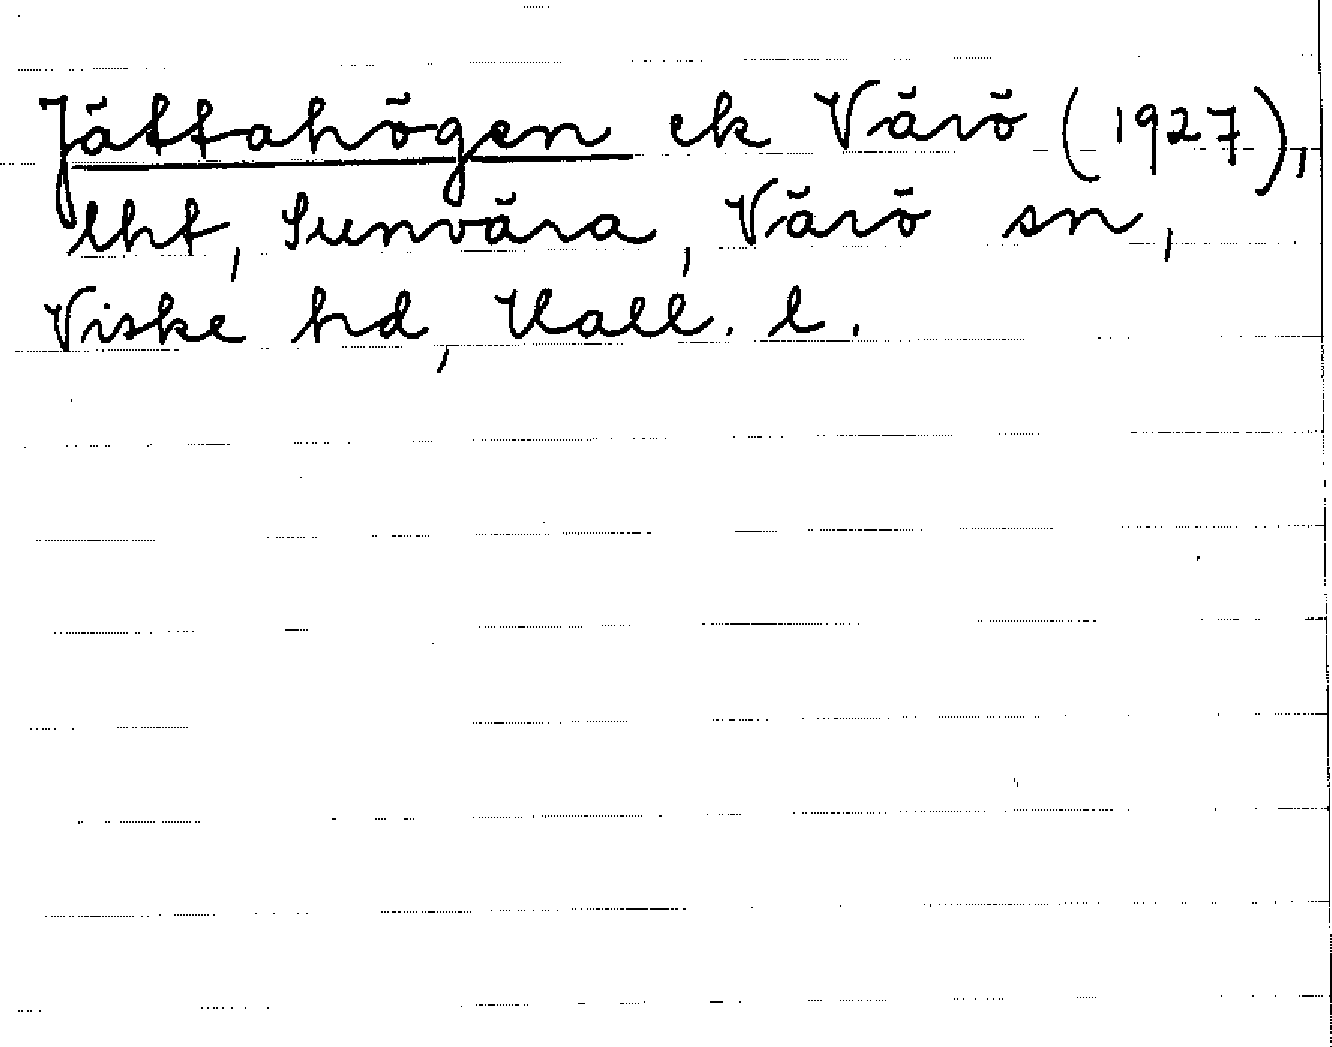 Jättahögen ek Värö (1927),
lht, Sunvära, Värö sn,
Viske hd, Hall. l.